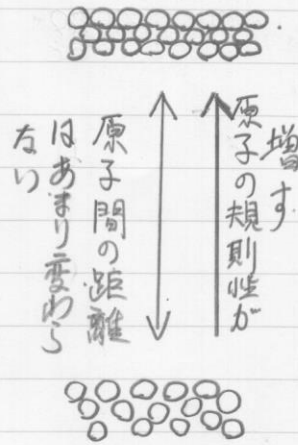 原子の規則性が
増す
原子間の距離
はあまり変わら
ない